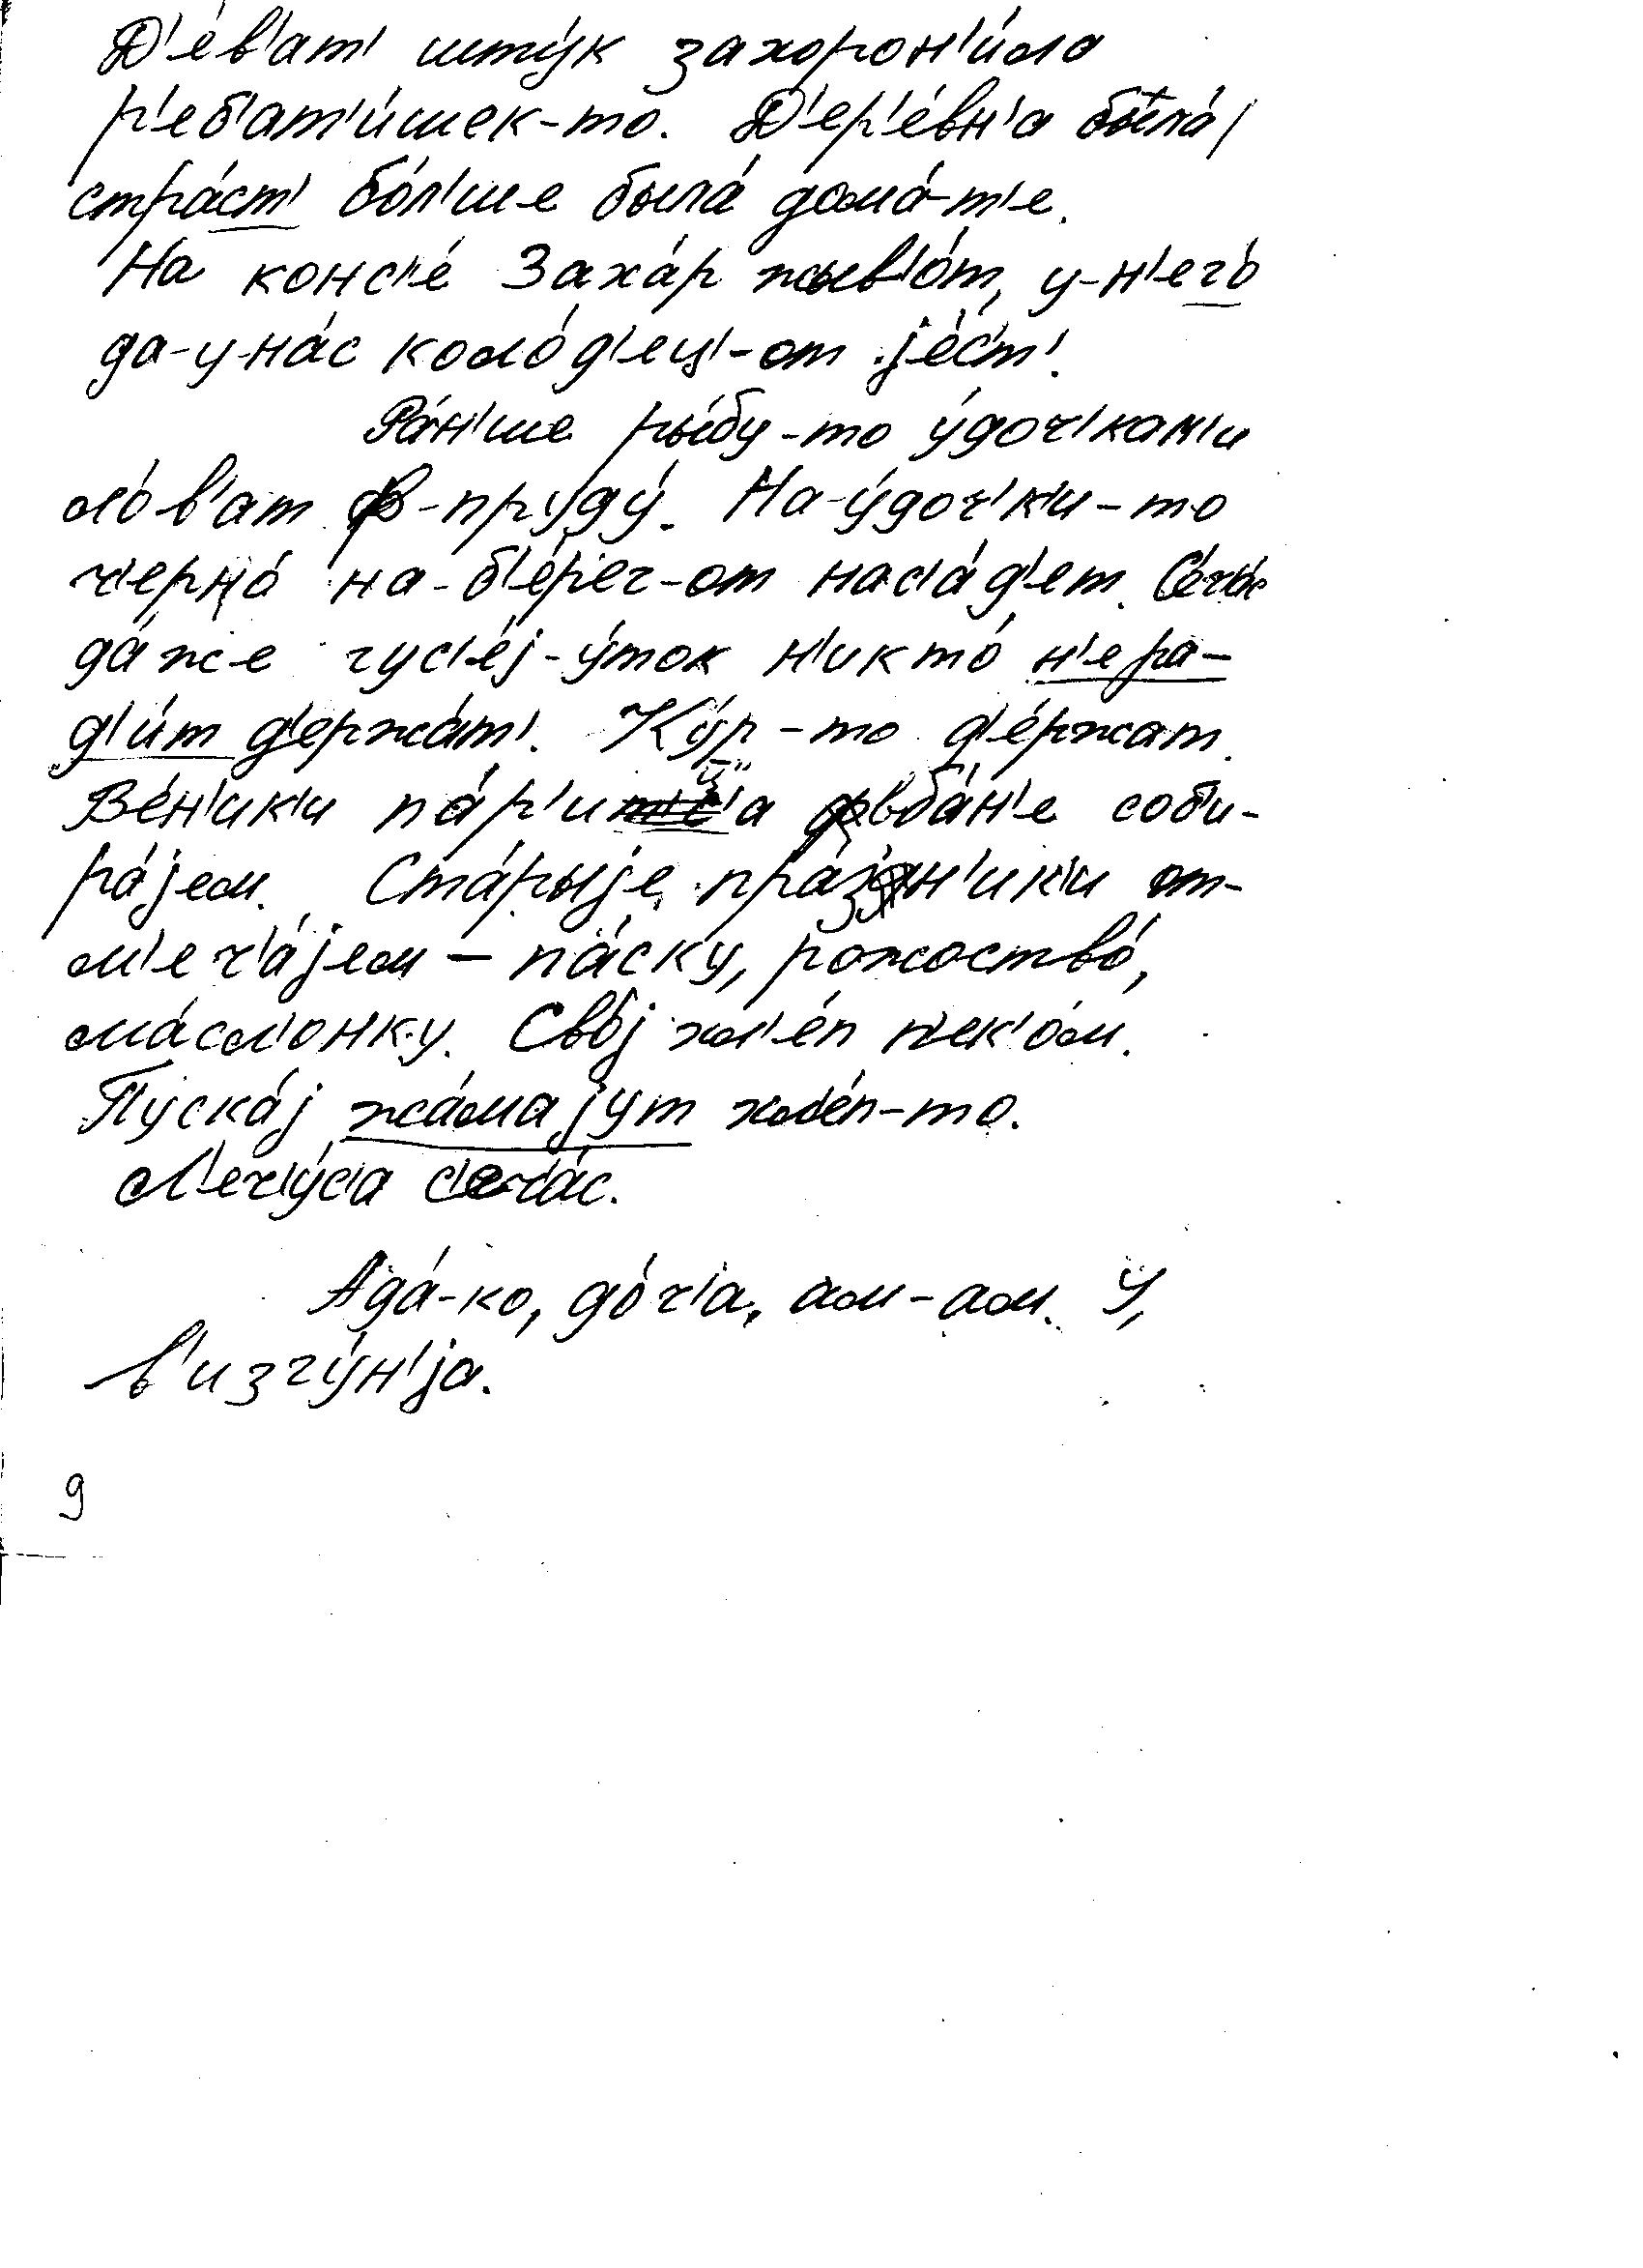 Д'е́в'ат' шту́к захорон'и́ла
р'еб'ат'и́шек-то. Д'ер'е́вн'а была́/
стра́ст' бо́л'ше была́ дома́-т'е.
На конс'е́ Заха́р жыв'о́т, у-н'его́
да-у-на́с коло́д'ец'-от је́ст'.
Ра́н'ше ры́бу-то у́доч'кам'и
ло́в'ат ф-пруду́. На-у́доч'к'и-то
ч'ерно́ на-б'е́р'ег-от нас'а́д'ет. Се́ч'ас
да́же гус'е́ј-у́ток н'икто́ н'е ра-
д'и́т д'ержа́т'. Ку́р-то д'е́ржат.
Ве́н'ик'и па́р'ица вба́н'е соб'и-
ра́јем. Ста́рыје пра́зн'ик'и от-
м'еч'а́јем – па́ску, рожоство́,
ма́сл'онку. Сво́ј хл'е́п п'ек'о́м.
Пуска́ј жа́мајут хл'е́п-то.
Л'еч'у́с'а с'еч'а́с.
Ада́-ко, до́ч'а, ам-ам. У,
в'изгу́н'ја.
9